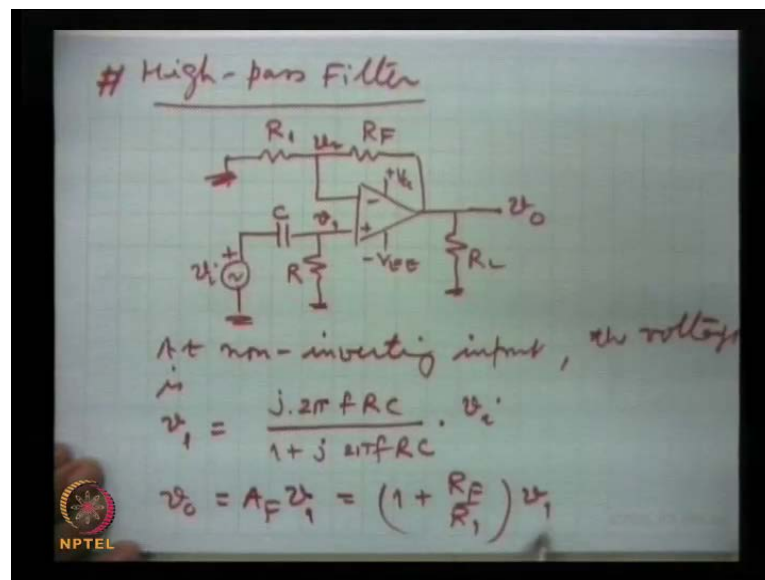 # High-pass Filter
R₁ v₂ R_F
+V
C v₁ - + v₀
vᵢ + R -V_EE R_L
At non-inverting input, the voltage
is
v₁ = j.2π f RC / 1 + j 2πf RC . vᵢ
v₀ = A_F v₁ = (1 + R_F / R₁) v₁
NPTEL